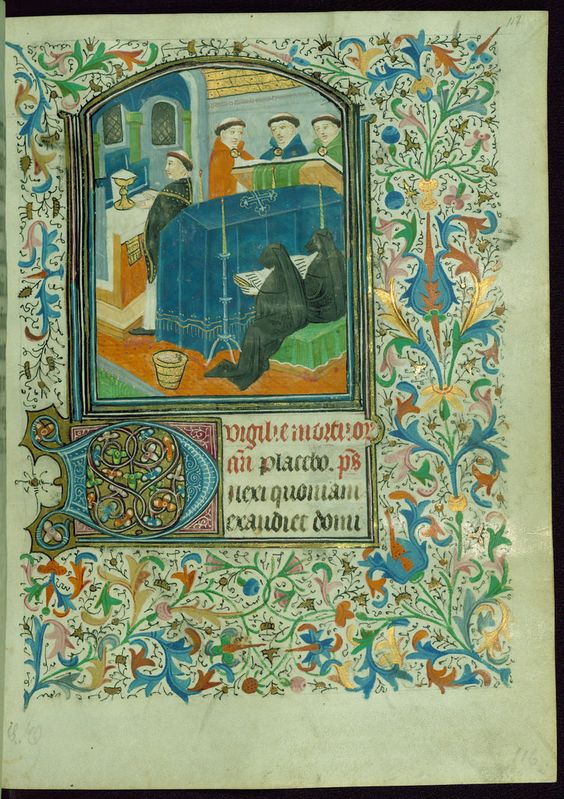 117
Vigilie mortuor
añ Placebo. p̄s
Dilexi quoniam
exaudiet domi
116